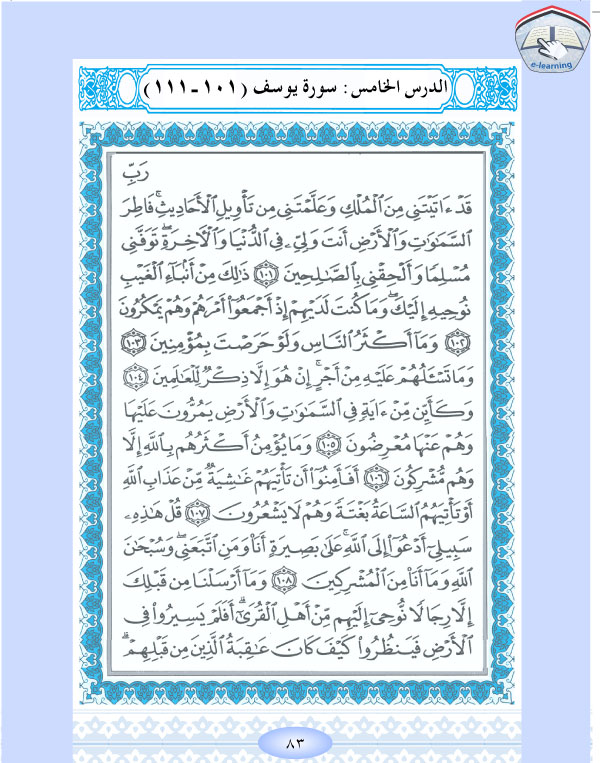 e-learning
الدرس الخامس : سورة يوسف (١٠١-١١١)
رَبِّ
قَدْ ءَاتَيْتَنِى مِنَ ٱلْمُلْكِ وَعَلَّمْتَنِى مِن تَأْوِيلِ ٱلْأَحَادِيثِ ۚ فَاطِرَ
ٱلسَّمَٰوَٰتِ وَٱلْأَرْضِ أَنتَ وَلِىِّۦ فِى ٱلدُّنْيَا وَٱلْءَاخِرَةِ ۖ تَوَفَّنِى
مُسْلِمًا وَأَلْحِقْنِى بِٱلصَّٰلِحِينَ ﴿١٠١﴾ ذَٰلِكَ مِنْ أَنۢبَآءِ ٱلْغَيْبِ
نُوحِيهِ إِلَيْكَ ۖ وَمَا كُنتَ لَدَيْهِمْ إِذْ أَجْمَعُوٓا۟ أَمْرَهُمْ وَهُمْ يَمْكُرُونَ
﴿١٠٢﴾ وَمَآ أَكْثَرُ ٱلنَّاسِ وَلَوْ حَرَصْتَ بِمُؤْمِنِينَ ﴿١٠٣﴾
وَمَا تَسْـَٔلُهُمْ عَلَيْهِ مِنْ أَجْرٍ ۚ إِنْ هُوَ إِلَّا ذِكْرٌ لِّلْعَٰلَمِينَ ﴿١٠٤﴾
وَكَأَيِّن مِّنْ ءَايَةٍ فِى ٱلسَّمَٰوَٰتِ وَٱلْأَرْضِ يَمُرُّونَ عَلَيْهَا
وَهُمْ عَنْهَا مُعْرِضُونَ ﴿١٠٥﴾ وَمَا يُؤْمِنُ أَكْثَرُهُم بِٱللَّهِ إِلَّا
وَهُم مُّشْرِكُونَ ﴿١٠٦﴾ أَفَأَمِنُوٓا۟ أَن تَأْتِيَهُمْ غَٰشِيَةٌ مِّنْ عَذَابِ ٱللَّهِ
أَوْ تَأْتِيَهُمُ ٱلسَّاعَةُ بَغْتَةً وَهُمْ لَا يَشْعُرُونَ ﴿١٠٧﴾ قُلْ هَٰذِهِۦ
سَبِيلِىٓ أَدْعُوٓا۟ إِلَى ٱللَّهِ ۚ عَلَىٰ بَصِيرَةٍ أَنَا۠ وَمَنِ ٱتَّبَعَنِى ۖ وَسُبْحَٰنَ
ٱللَّهِ وَمَآ أَنَا۠ مِنَ ٱلْمُشْرِكِينَ ﴿١٠٨﴾ وَمَآ أَرْسَلْنَا مِن قَبْلِكَ
إِلَّا رِجَالًا نُّوحِىٓ إِلَيْهِم مِّنْ أَهْلِ ٱلْقُرَىٰٓ ۗ أَفَلَمْ يَسِيرُوا۟ فِى
ٱلْأَرْضِ فَيَنظُرُوا۟ كَيْفَ كَانَ عَٰقِبَةُ ٱلَّذِينَ مِن قَبْلِهِمْ ۗ
٨٣